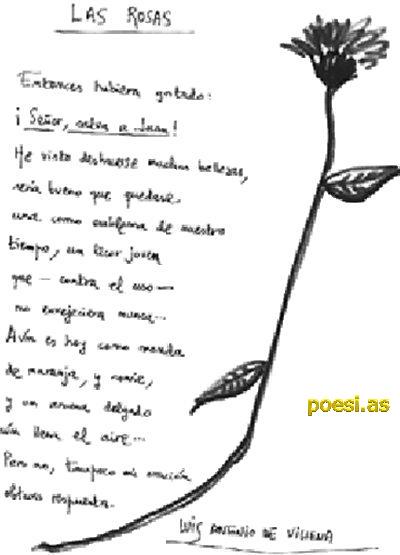 LAS ROSAS
Entonces hubiera gritado:
¡Señor, salva a Juan!
He visto deshacerse muchas bellezas,
sería bueno que quedase
una como emblema de nuestro
tiempo, un licor joven
que — contra el uso —
no envejeciera nunca...
Aún es hoy como menta
de naranja, y sonríe,
y un aroma delgado
aún llena el aire...
Pero no, tampoco mi oración
obtuvo respuesta.
LUIS ANTONIO DE VILLENA
poesi.as